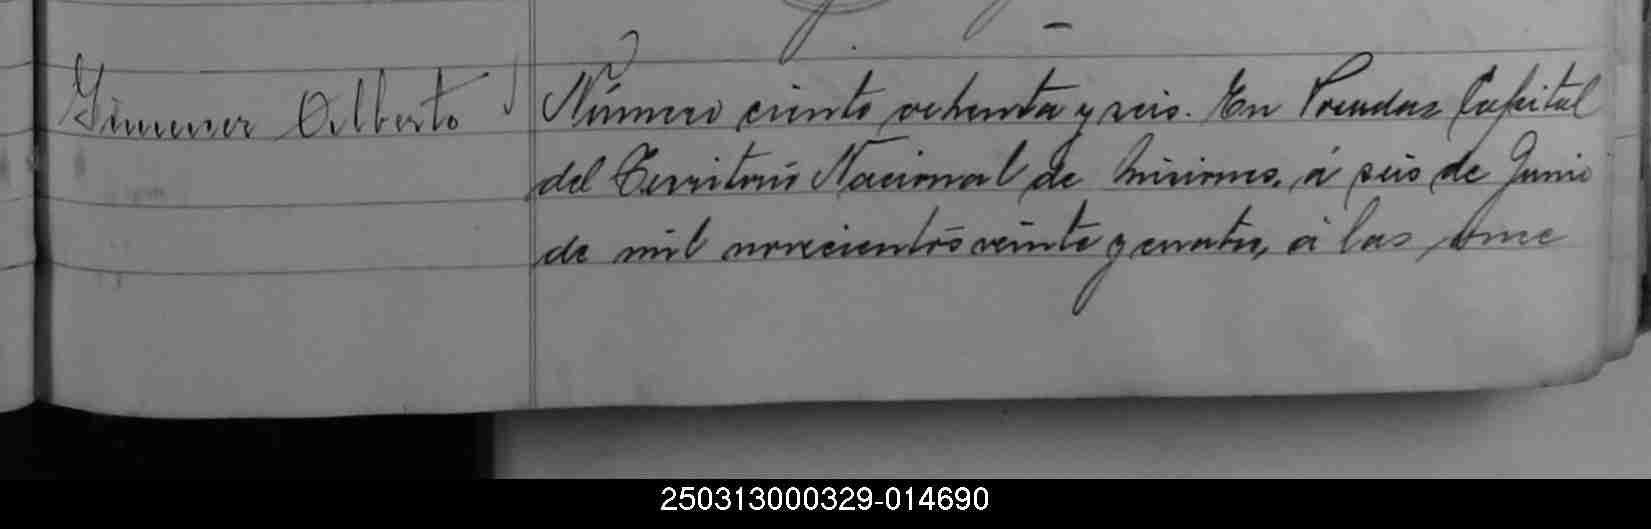 Gimenez Alberto
Número ciento ochenta y seis. En Posadas Capital
del Territorio Nacional de Misiones, á seis de Junio
de mil novecientos veinte y cuatro, á las once
250313000329-014690